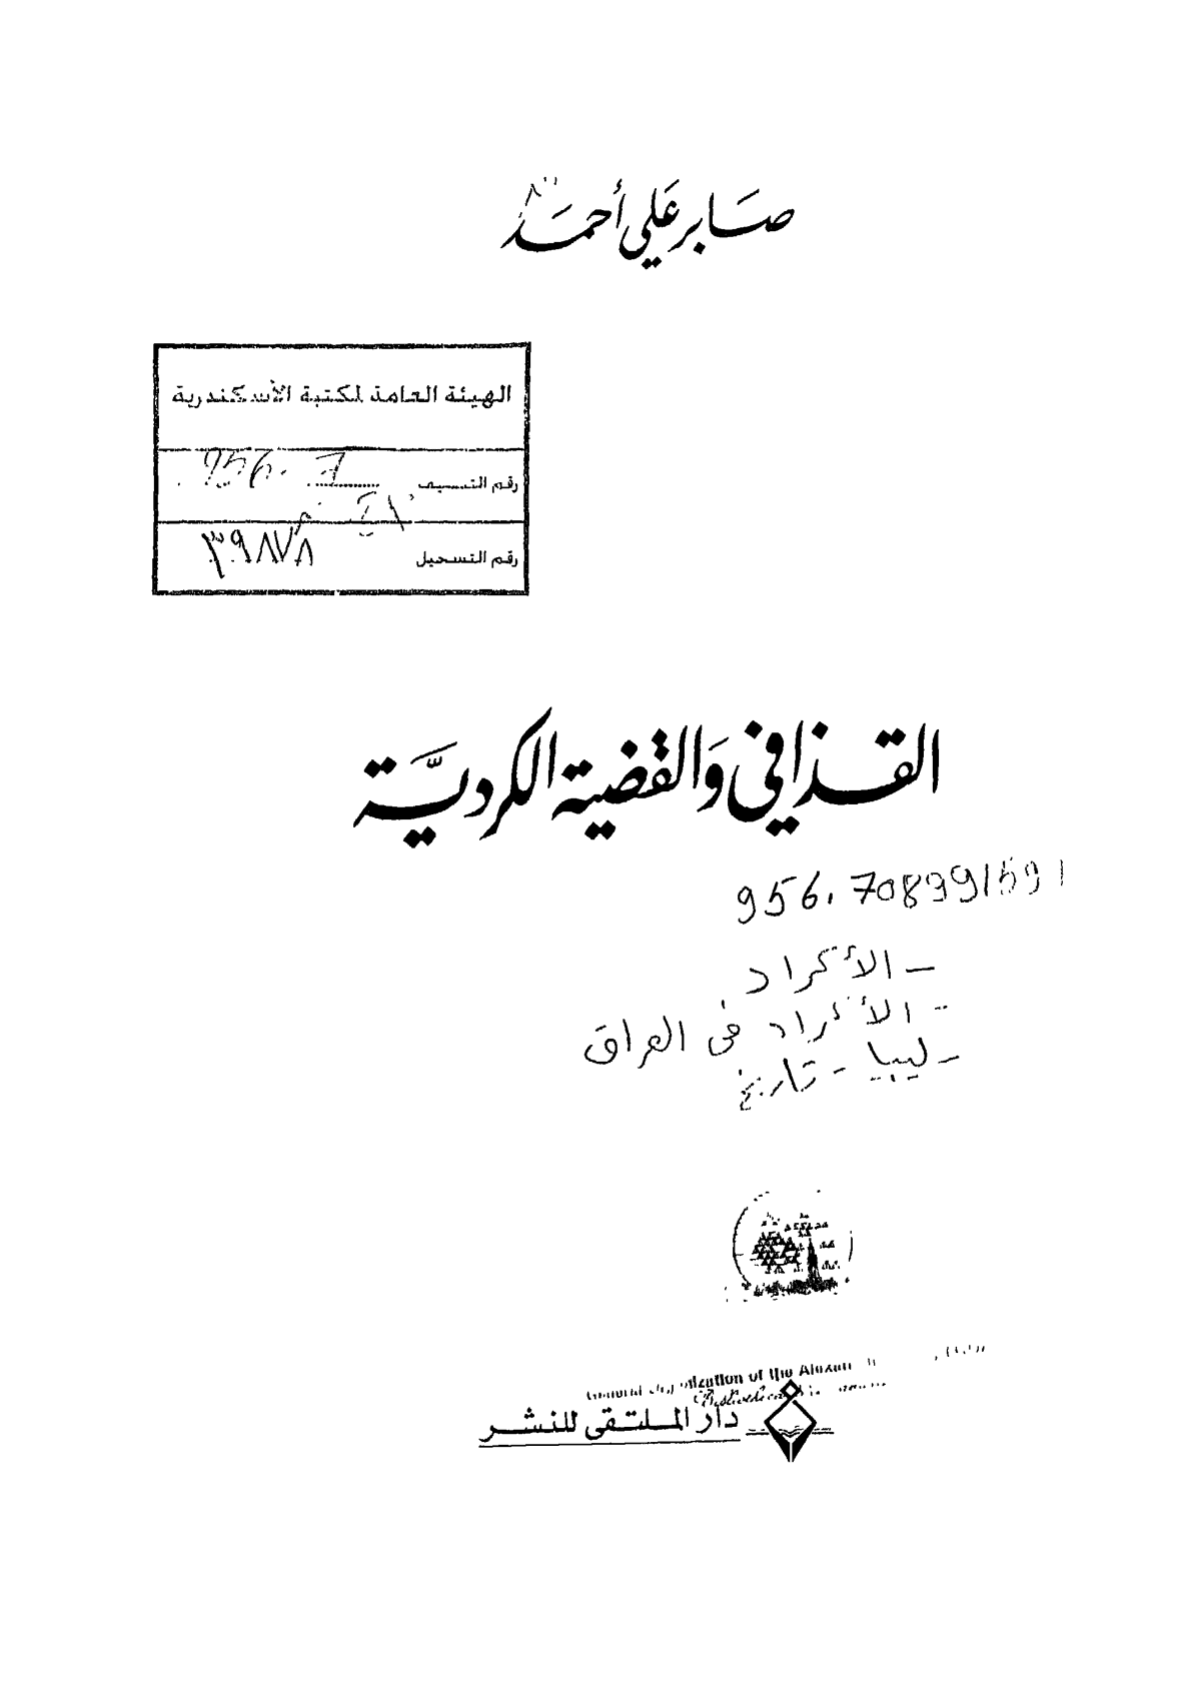 صابر علي أحمد
الهيئة العامة لمكتبة الأسكندرية
رقم التصنيف 956.7
رقم التسجيل ٣٩٨٧٨
القذافي والقضية الكرديَّة
956.70899159
- الأكراد
- الأكراد فى العراق
- ليبيا - تاريخ
of the
دار الملتقى للنشر